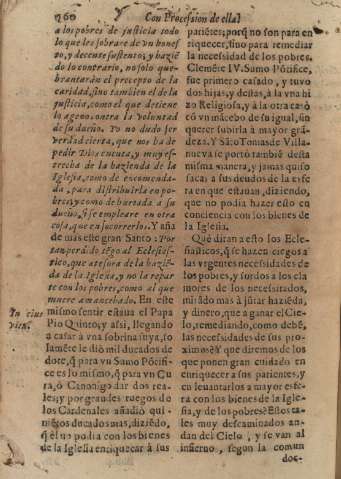 260 Con Procession de ella!
a los pobres de justicia todo
lo que les sobrare de vn hones-
to, y decente sustento; y haziē-
do lo contrario, no solo que-
brantarān el precepto de la
caridad, sino tambien el de la
justicia, como el que detiene
lo ageno contra la voluntad
de su dueño. Yo no dudo ser
verdad cierta, que nos ha de
pedir Dios cuenta, y muy es-
trecha de la hazienda de la
Iglesia, como de encomenda-
da, para distribuirla en po-
bres; y como de hurtada a su
dueño, si se empleare en otra
cosa, que en socorrerlos. Y aña-
de mas este gran Santo: Por
tan perdido tēgo al Eclesiast-
tico, que atesora de la haziē-
da de la Iglesia, y no la repar-
te con los pobres, como al que
muere amancebado. En este
In eius
vita.
mismo sentir estaua el Papa
Pio Quinto; y assi, llegando
a casar à vna sobrina suya, so-
lamēte le diò mil ducados de
dote, q̄ para vn Sumo Pōtifi-
ce es lo mismo, q̄ para vn Cu-
ra, ò Canonigo dar dos rea-
les; y por grandes ruegos de
los Cardenales añadiò qui-
niētos ducados mas, diziēdo,
q̄ èl no podia con los bienes
de la Iglesia enriquezer à sus
pariētes; porq̄ no son para en
riquecer, sino para remediar
la necessidad de los pobres.
Clemēte IV. Sumo Pōtifice,
fue primero casado, y tuvo
dos hijas, y destas, à la vna hi
zo Religiosa, y à la otra casò
cō vn mācebo de su igual, sin
querer subirla à mayor grā-
deza. Y Sāto Tomas de Villa-
nueva se portò tambiē desta
misma manera, y jamàs quiso
sacar à sus deudos de la esfe
ra en que estauan, diziendo,
que no podia hazer esto en
conciencia con los bienes de
la Iglesia.
Què diran a esto los Ecle-
siasticos, q̄ se hazen ciegos a
las vrgentes necessidades de
los pobres, y sordos a los cla
mores de los necessitados,
mirādo mas à jūtar haziēda,
y dinero, que a ganar el Cie-
lo, remediando, como debē,
las necessidades de sus pro-
ximos? Y què diremos de los
que ponen gran cuidado en
enriquecer a sus parientes, y
en leuantarlos a mayor esfe-
ra con los bienes de la Igle-
sia, y de los pobres? Estos ca-
les muy descaminados an-
dan del Cielo, y se van al
infierno, segun la comun
doc-